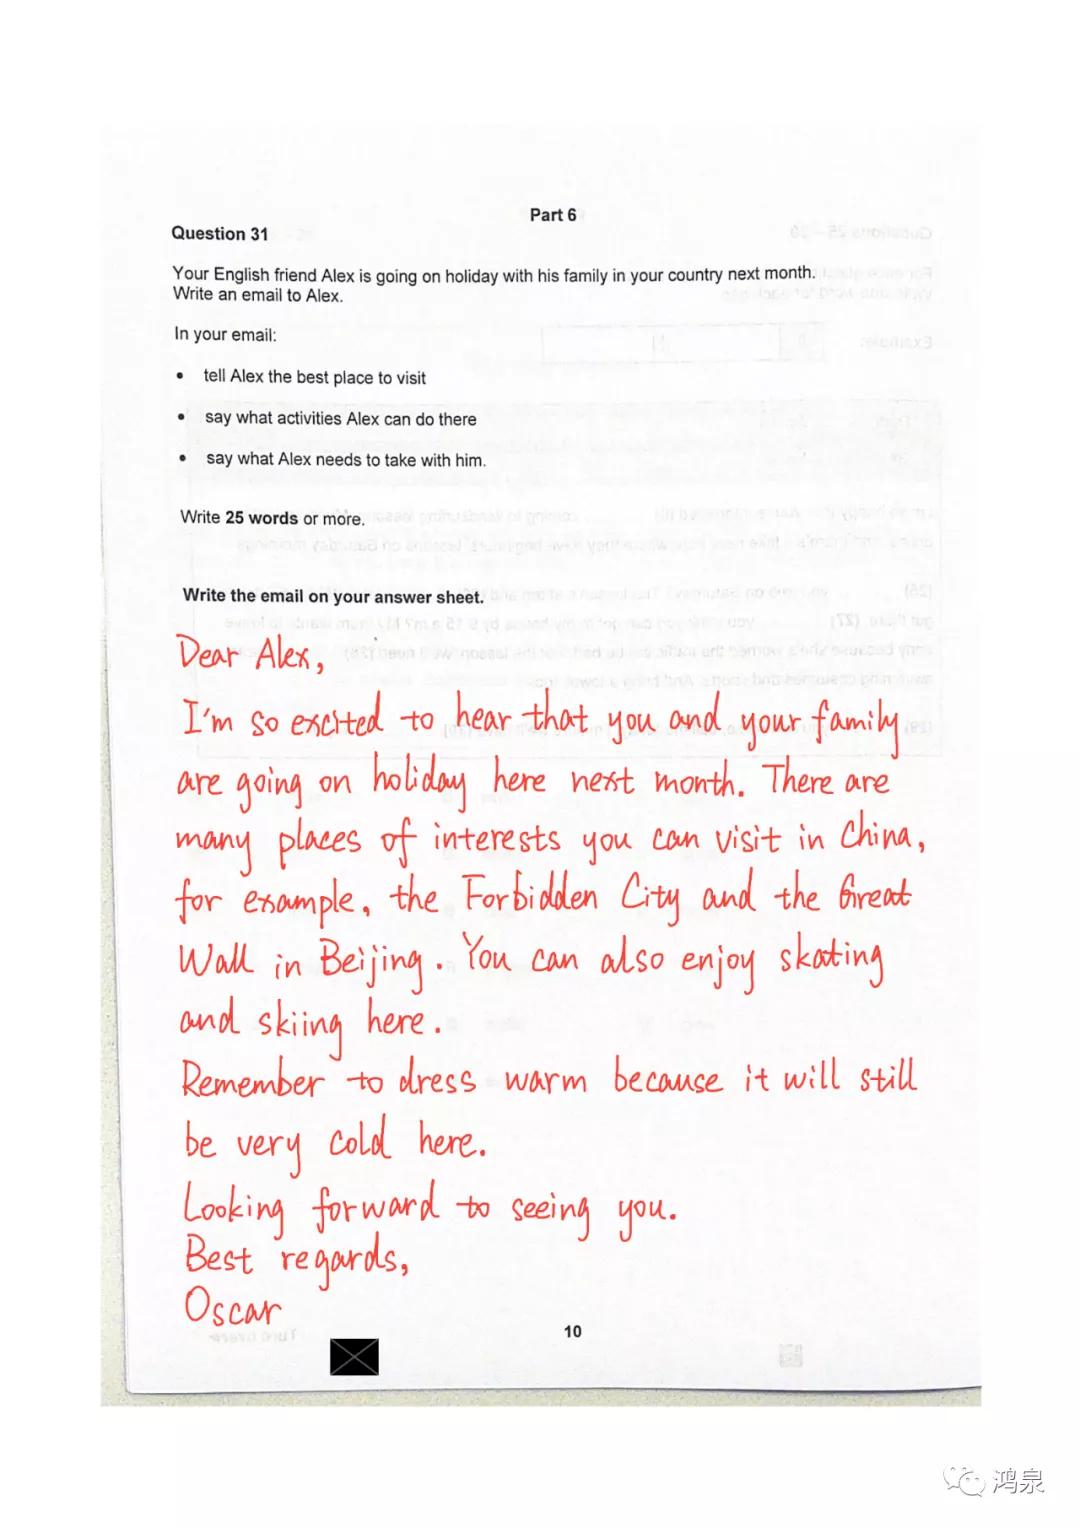 Part 6
Question 31
Your English friend Alex is going on holiday with his family in your country next month.
Write an email to Alex.
In your email:
• tell Alex the best place to visit
• say what activities Alex can do there
• say what Alex needs to take with him.
Write 25 words or more.
Write the email on your answer sheet.
Dear Alex,
I'm so excited to hear that you and your family
are going on holiday here next month. There are
many places of interests you can visit in China,
for example, the Forbidden City and the Great
Wall in Beijing. You can also enjoy skating
and skiing here.
Remember to dress warm because it will still
be very cold here.
Looking forward to seeing you.
Best regards,
Oscar
10
鸿泉